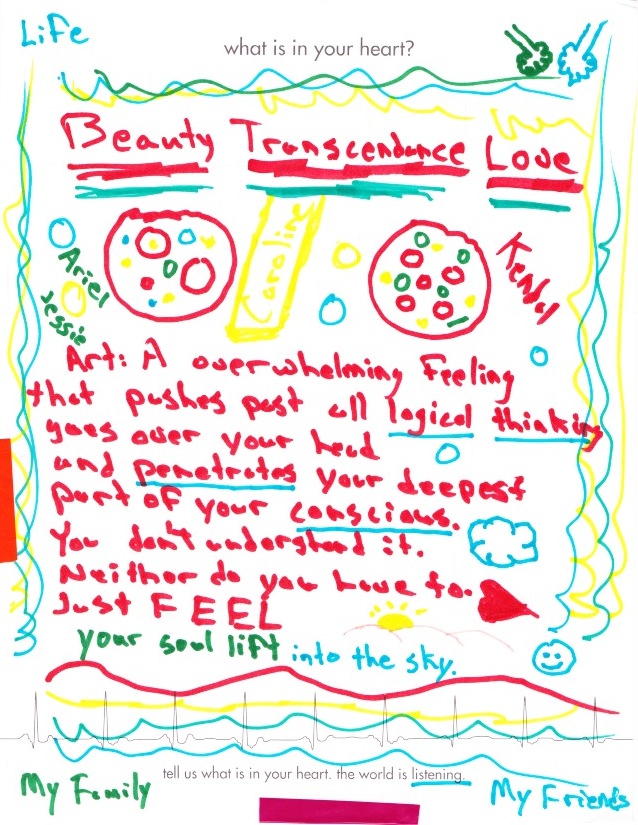 Life
what is in your heart?
Beauty Transcendance Love
Caroline
Ariel
Jessie
Kendal
Art: A overwhelming Feeling
that pushes past all logical thinking
goes over your head
and penetrates your deepest
part of your conscious.
You don't understand it.
Neither do you have to.
Just FEEL
your soul lift into the sky.
tell us what is in your heart. the world is listening.
My Family
My Friends